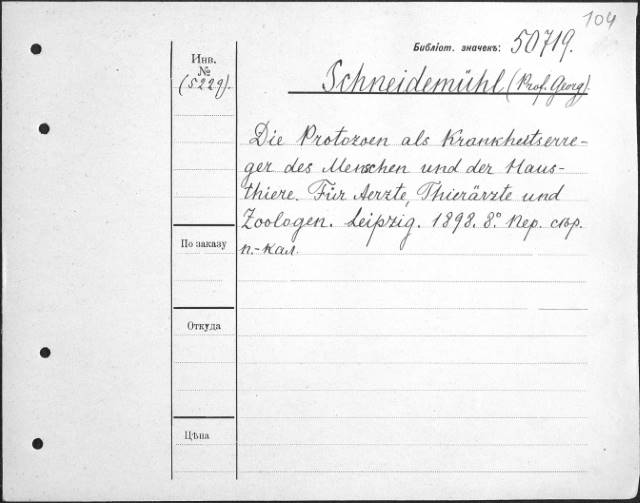 104
Библіот. значекъ: 50719.
Инв.
№
(5229).
Schneidemühl (Prof. Georg).
Die Protozoen als Krankheitserre-
ger des Menschen und der Haus-
thiere. Für Aerzte, Thierärzte und
Zoologen. Leipzig. 1898. 8° Пер. сѣр.
п.-кал.
По заказу
Откуда
Цѣна